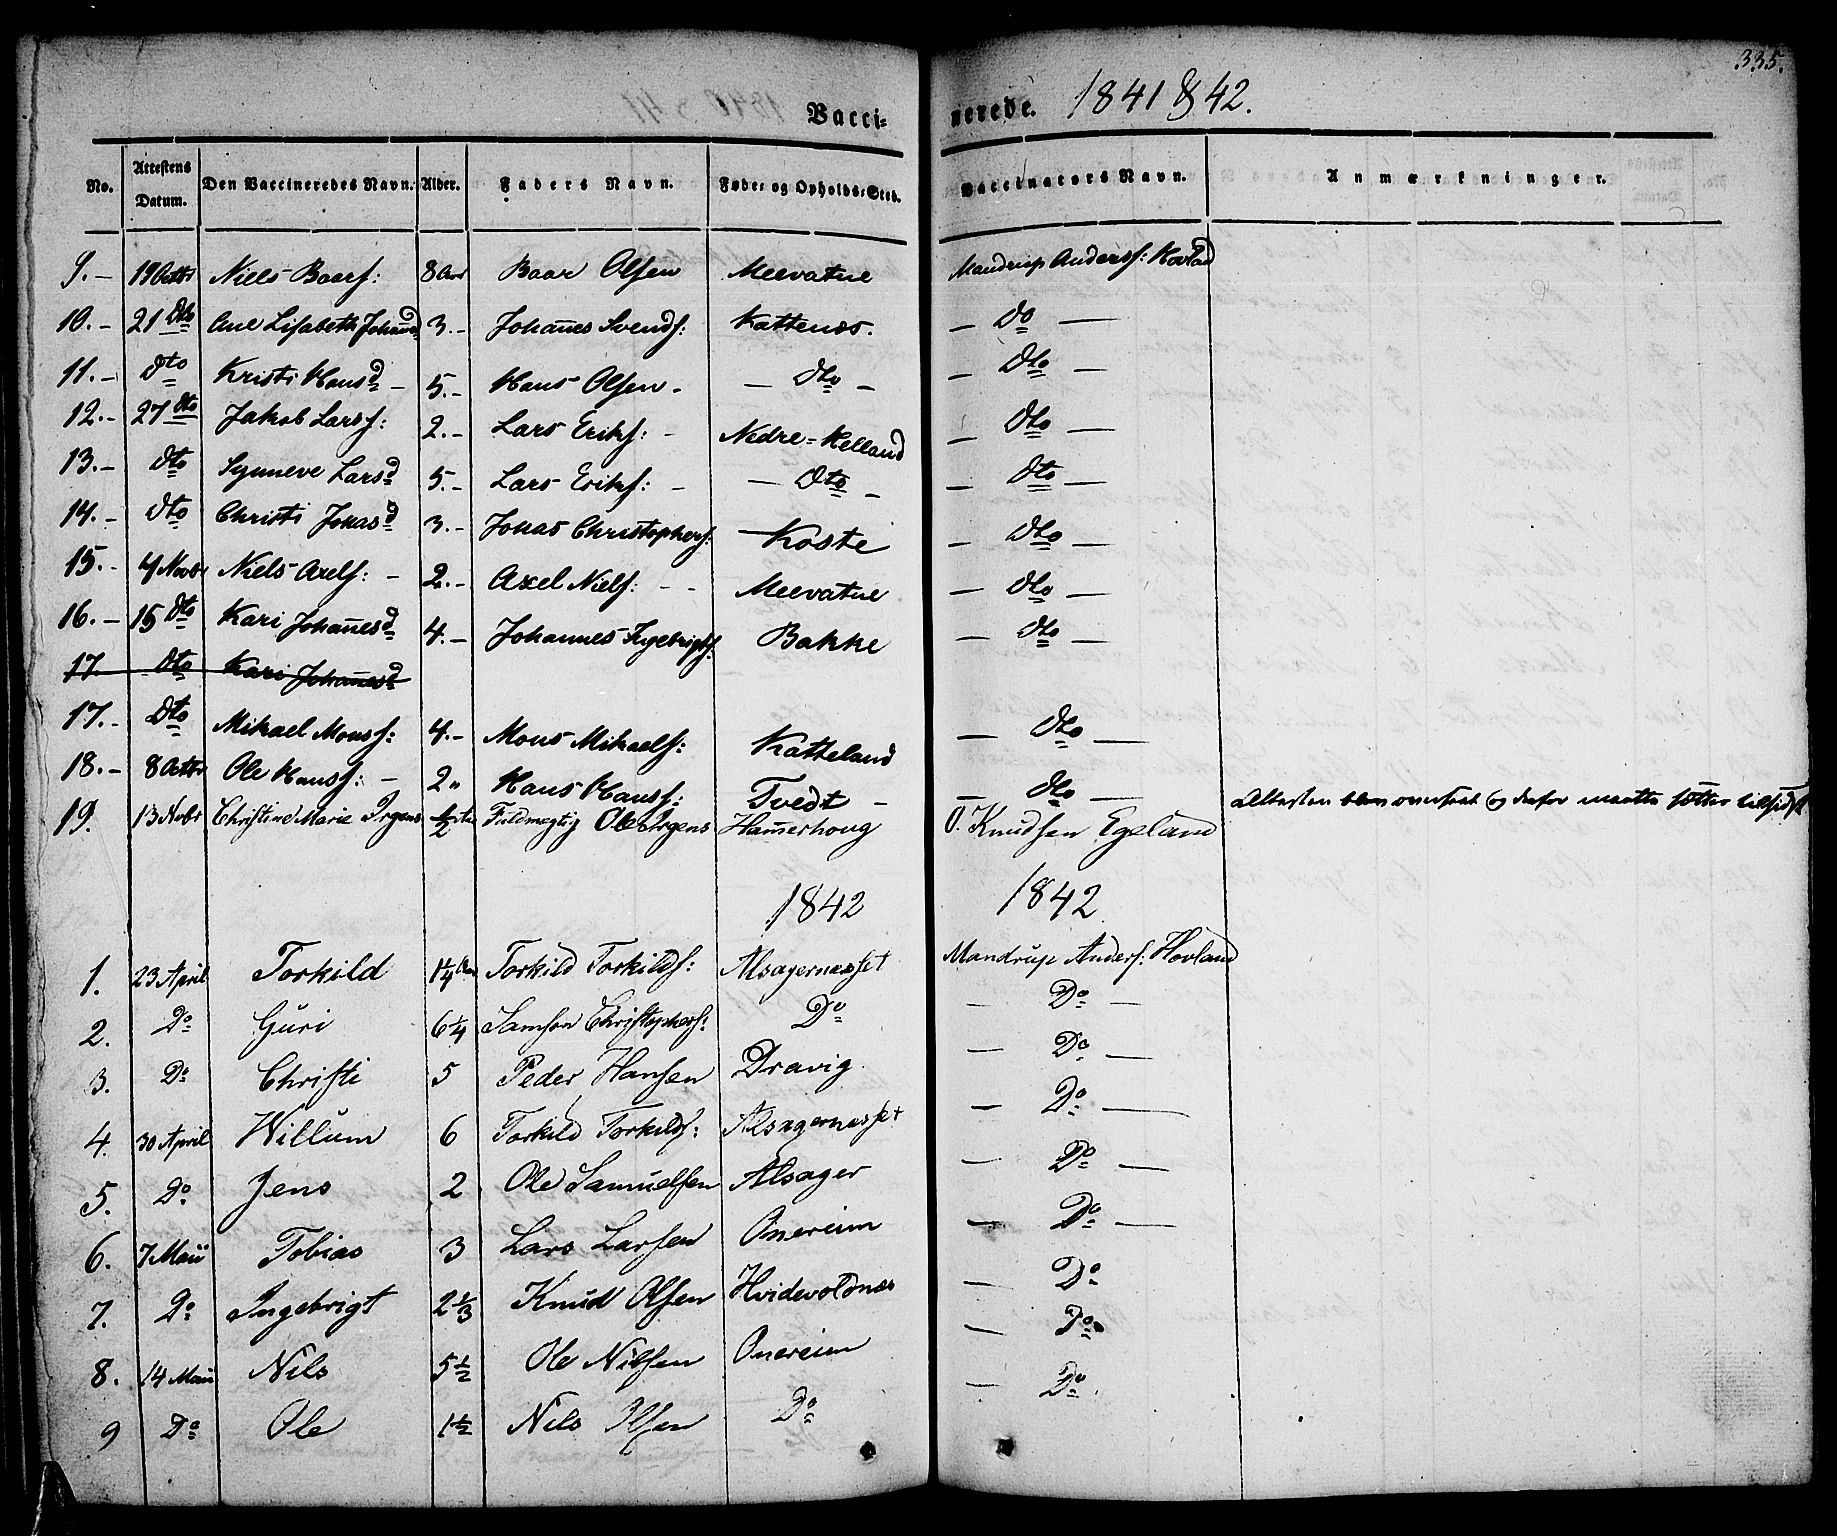 335.
Vaccinerede. 1841 & 42.
No. Attestens Datum. Den Vaccineredes Navn. Alder. Faders Navn. Føde- og Opholds-Sted. Vaccinators Navn. Anmærkninger.
9.- 19 Octbr Niels Baars: 8 Aar Baar Olsen Meevatne Mandrup Anders: Hovland
10.- 21 Dto Ane Lisabeth Johand 3.- Johannes Svends: Kattenæs. — Do —
11.- Dto Kristi Hansd - 5.- Hans Olsen - — Dto — — Dto —
12.- 27 Dto Jakob Larss: 2.- Lars Eriks: - Nedre-Helland — Dto —
13.- Dto Synneve Larsd 5.- Lars Eriks: - — Dto — — Dto —
14.- Dto Christi Jonasd 3.- Jonas Christophers: Koste — Dto —
15.- 4 Novbr Niels Axels: - 2.- Axel Niels: - - Meevatne — Dto —
16.- 15 Dto Kari Johannesd 4.- Johannes Ingebrigts: Bakke — Dto —
17. Dto Kari Johannesd
17.- Dto Mikael Monss: 4.- Mons Mikaels: Katteland — Dto —
18.- 8 Octbr Ole Hanss: - 2" Hans Hanss: Tvedt - — Dto —
19. 13 Nobr Christine Marie Irgens 1/2 Fuldmegtig Ole Irgens Hammerhoug O. Knudsen Egeland
1842 1842
1. 23 April Torkild 1 1/4 Aar Torkild Torkilds: Alsagernesset Mandrup Anders: Hovland
2. Do Guri 6 1/4 Samson Christophers: Do — Do —
3. Do Christi 5 Peder Hansen Dravig — Do —
4. 30 April Willum 6 Torkild Torkilds: Alsagernesset — Do —
5. Do Jens 2 Ole Samuelsen Alsager — Do —
6. 7 Maii Tobias 3 Lars Larsen Onereim — Do —
7. Do Ingebrigt 2 1/3 Knud Olsen Hvidevoldnæs — Do
8. 14 Maii Nils 5 1/2 Ole Nilsen Onereim — Do
9 Do Ole 1 1/2 Nils Olsen Do — Do.